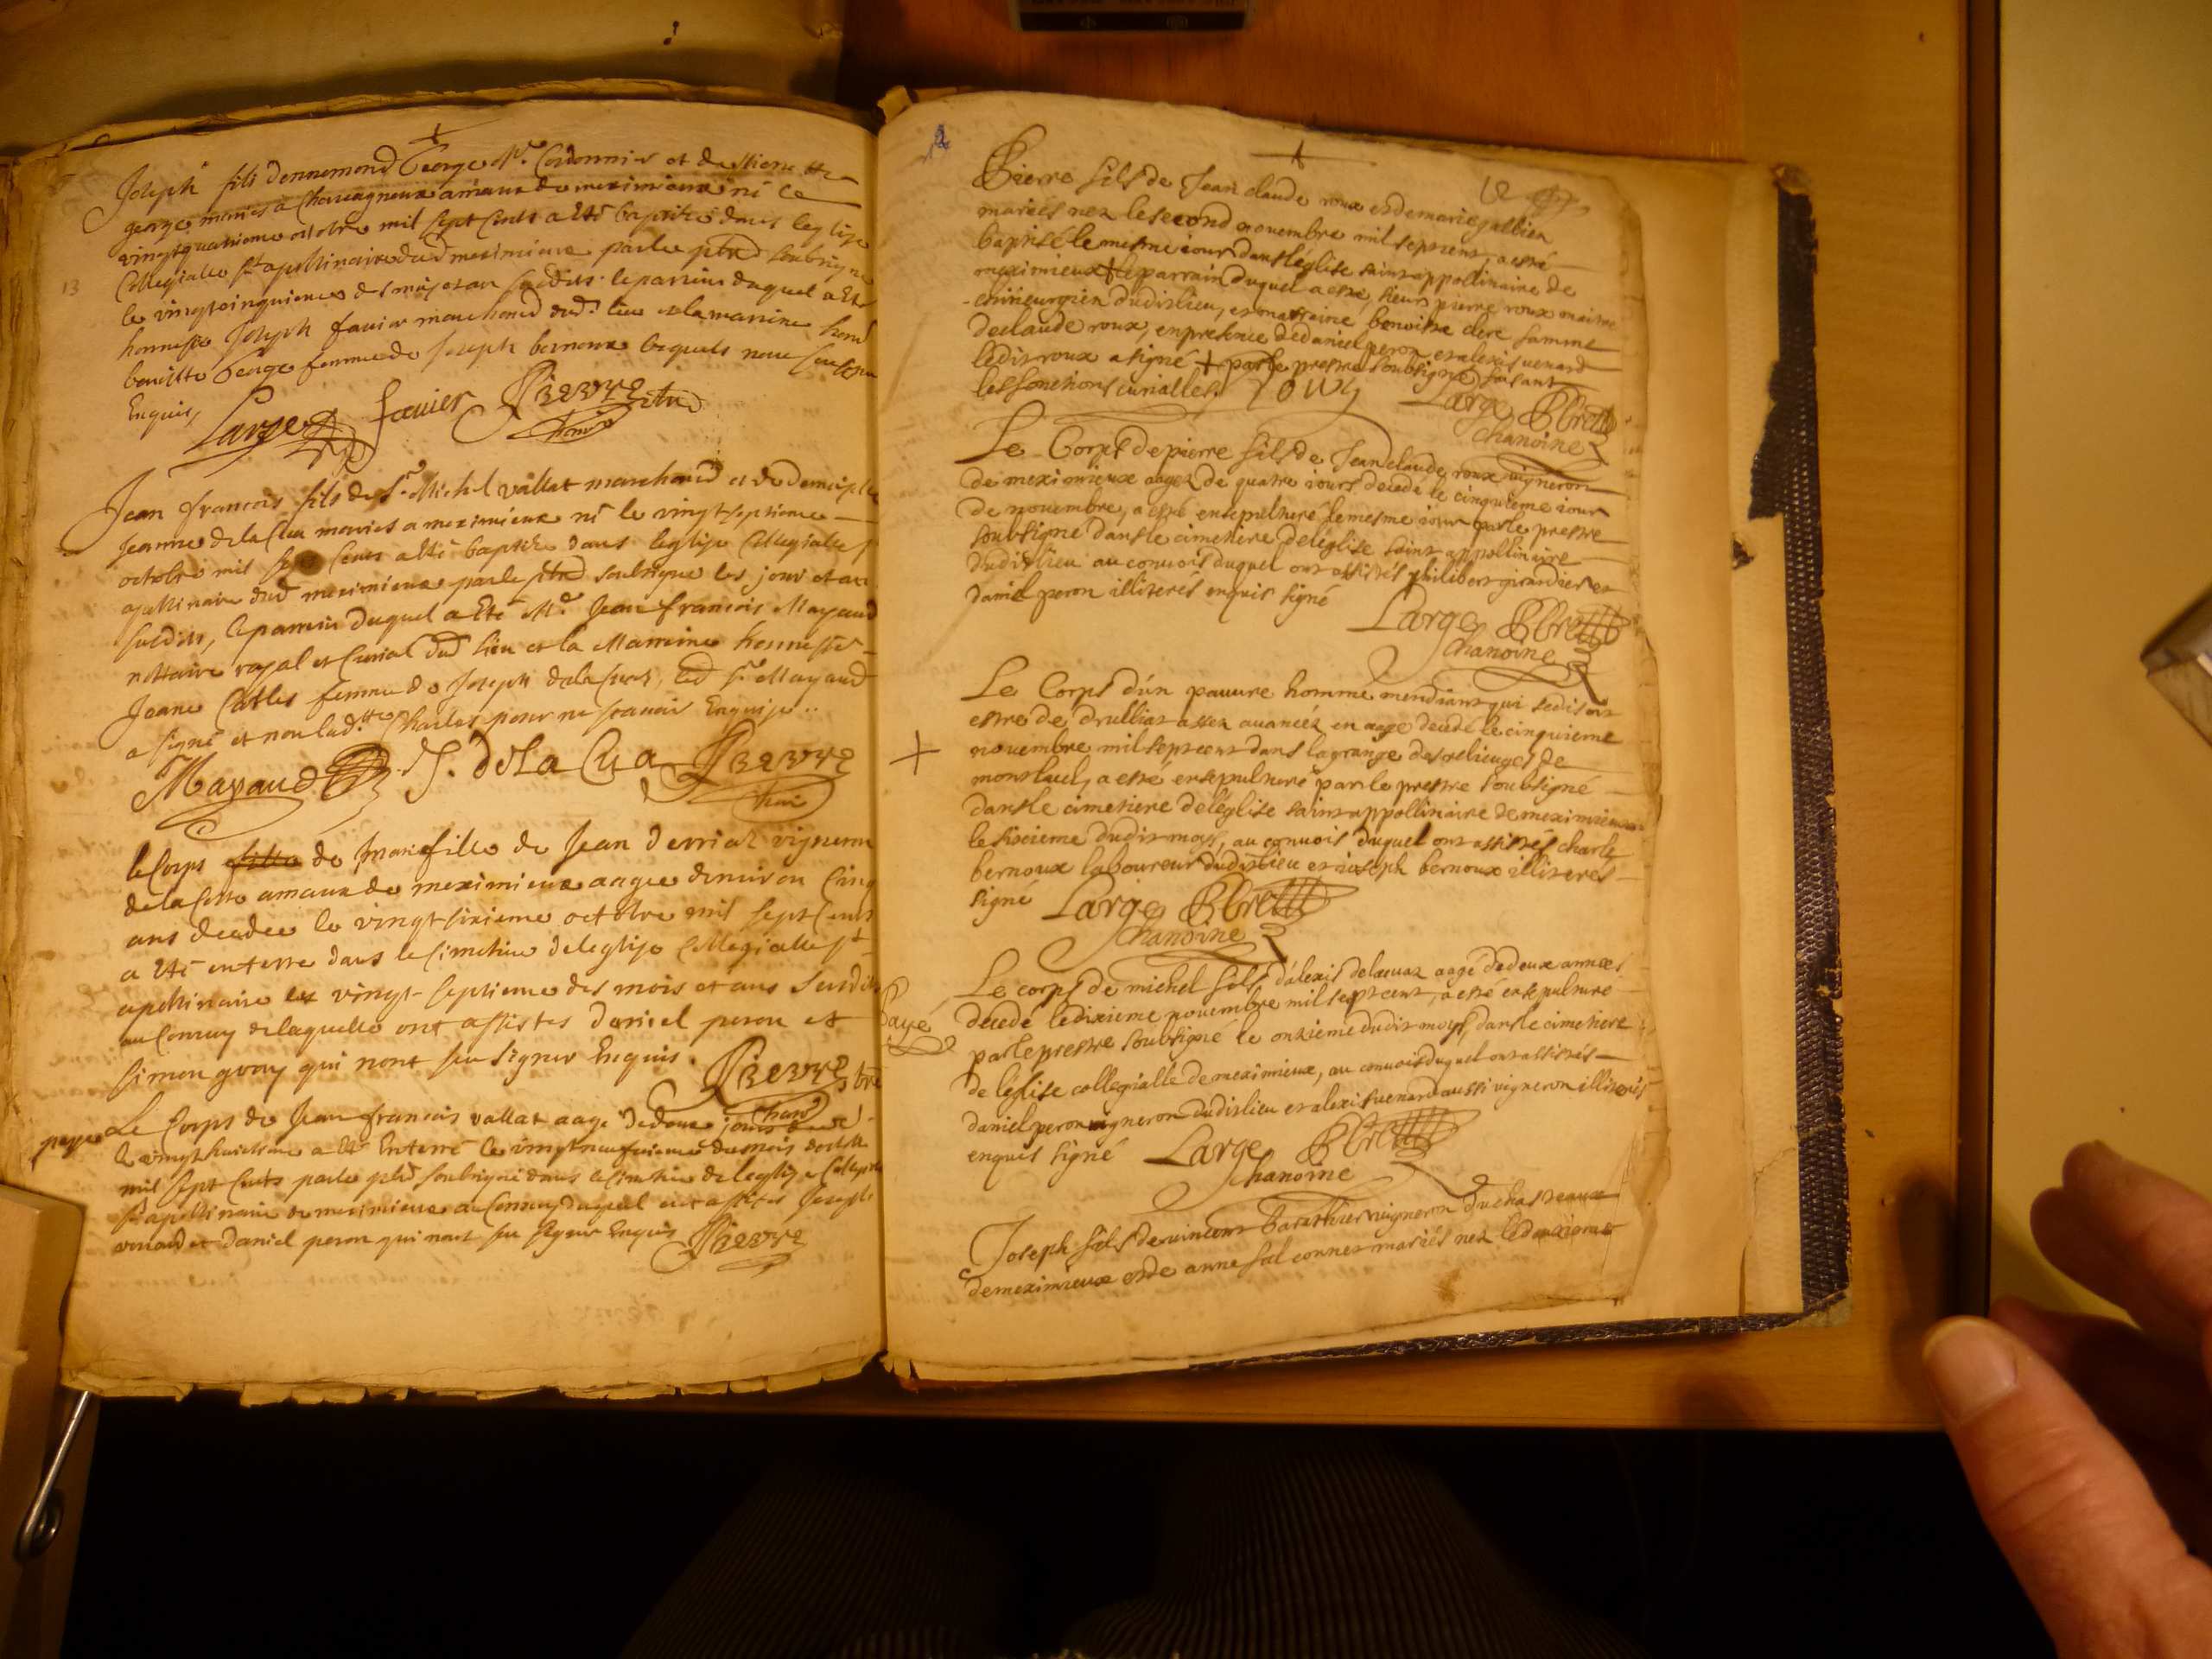 Joseph fili dennemond George Mre Cordonnier et de
george mariés a Charagneux amaux de meximieux né le
vingtquatrieme octobre mil sept cents a eté baptisé dans leglise
Collegialle St apollinaire dud meximieux par le pbre soubsigne
le vingtcinquieme des mois et an susdits. le parrin duquel a eté
honneste Joseph favier marchand dud. lieu et la marrine
benoitte George femme de Joseph bernoux lequels
Enquis,
Large favier Pierre
13
Jean francois fils de Sr Michel vallat marchand et de
Jeanne dela Cua mariés a meximieux né le vingtseptieme
octobre mil sept cents a eté baptisé dans leglise Collegialle
apollinaire dud meximieux par le pbre soubsigne les jour et an
susdits, le parrin duquel a eté Me Jean francois Mayaud
nottaire royal et Curial dud lieu et la Marrine honneste
Jeane femme de Joseph dela Cua, led Sr Mayaud
a signé et non lad. Charles pour ne scavoir Enquise..
Mayaud J. Dela Cua Pierre
le Corps de fille de Jean Derriaz vigneron
de la Coste amaux de meximieux aagee denviron Cinq
ans decedee le vingt sixieme octobre mil sept Cents
a eté enterre dans le Cimetiere deleglise Collegialle St
apollinaire le vingt-septieme des mois et ans susdits
au Convoy de laquelle ont assistes daniel peron et
simon guoy qui nont seu signer Enquis.
Pierre
Le Corps de Jean francois vallat aagé de deux jours
le vingthuictieme a eté Enterré le vingtneufvieme du mois doctobre
mil sept Cents par le pbre soubsigné dans le Cimetiere de leglise
St apollinaire de meximieux au Convoy duquel ont assistes Joseph
venard et Daniel peron qui nont seu signer Enquis Pierre
Pierre fils de Jean claude roux et de marie gallien
mariés nez le second novembre mil sept cent, a esté
baptisé le mesme iour dans l'église saint appollinaire de
meximieux + le parrain duquel a esté, sieur pierre roux maitre
chirieurgien dudit lieu, et marraine benoiste clerc famme
de claude roux, en presence de daniel peron et alexis venard
ledit roux a signé + par le prestre soubsigné faisant
les fonctions curialles. roux
Large
chanoine
Le Corps de pierre fils de Jean claude roux vigneron
de meximieux aagez de quatre iours decedé le cinquieme iour
de novembre, a esté ensepulturé le mesme iour par le prestre
soubsigné dans le cimetiere de l'église saint appollinaire
dudit lieu au convois duquel ont assistés philibert girardier et
daniel peron illiterés enquis signé
Large
Chanoine
Le Corps d'un pauvre homme mendiant qui se disoit
estre de drulliat assez avancéz en aage decedé le cinquieme
novembre mil sept cent dans la grange des relieuges de
montluel, a esté ensepulturé par le prestre soubsigné
dans le cimetiere de l'église saint appollinaire de meximieux
le sixieme dudit moys, au convois duquel ont assistés charle
bernoux laboureur dudit lieu et ioseph bernoux illiterés
signé Large
Chanoine
+
Le corps de michel fils d'alexis delacuaz aagé de deux années
decedé le dixieme novembre mil sept cent, a esté ensepulturé
par le prestre soubsigné le onzieme dudit moys, dans le cimetiere
de l'église collegialle de meximieux, au convois duquel ont assistés
daniel peron vigneron dudit lieu et alexis venard aussi vigneron illiterés
enquis signé Large
Chanoine
Payé
Joseph fils de vincent vigneron du chasteaux
de meximieux et de anne falconnet mariés nez le